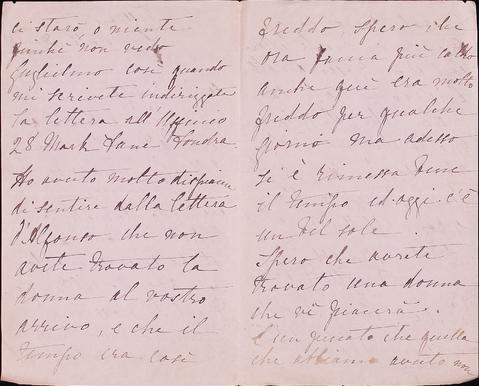 ci starò o niente
finchè non vedo
Guglielmo così quando
mi scrivete indirizzate
la lettera all
28 Mark Lane Londra.
Ho avuto molto dispiacere
di sentire dalla lettera
d'Alfonso che non
avete trovato la
donna al vostro
arrivo, e che il
tempo era così
freddo, spero che
ora faccia più caldo
anche quì era molto
freddo per qualche
giorno ma adesso
si è rimesso bene
il tempo ed oggi c'è
un bel sole.
Spero che avrete
trovato una donna
che vi piacerà.
È un peccato che quella
che abbiamo avuto non